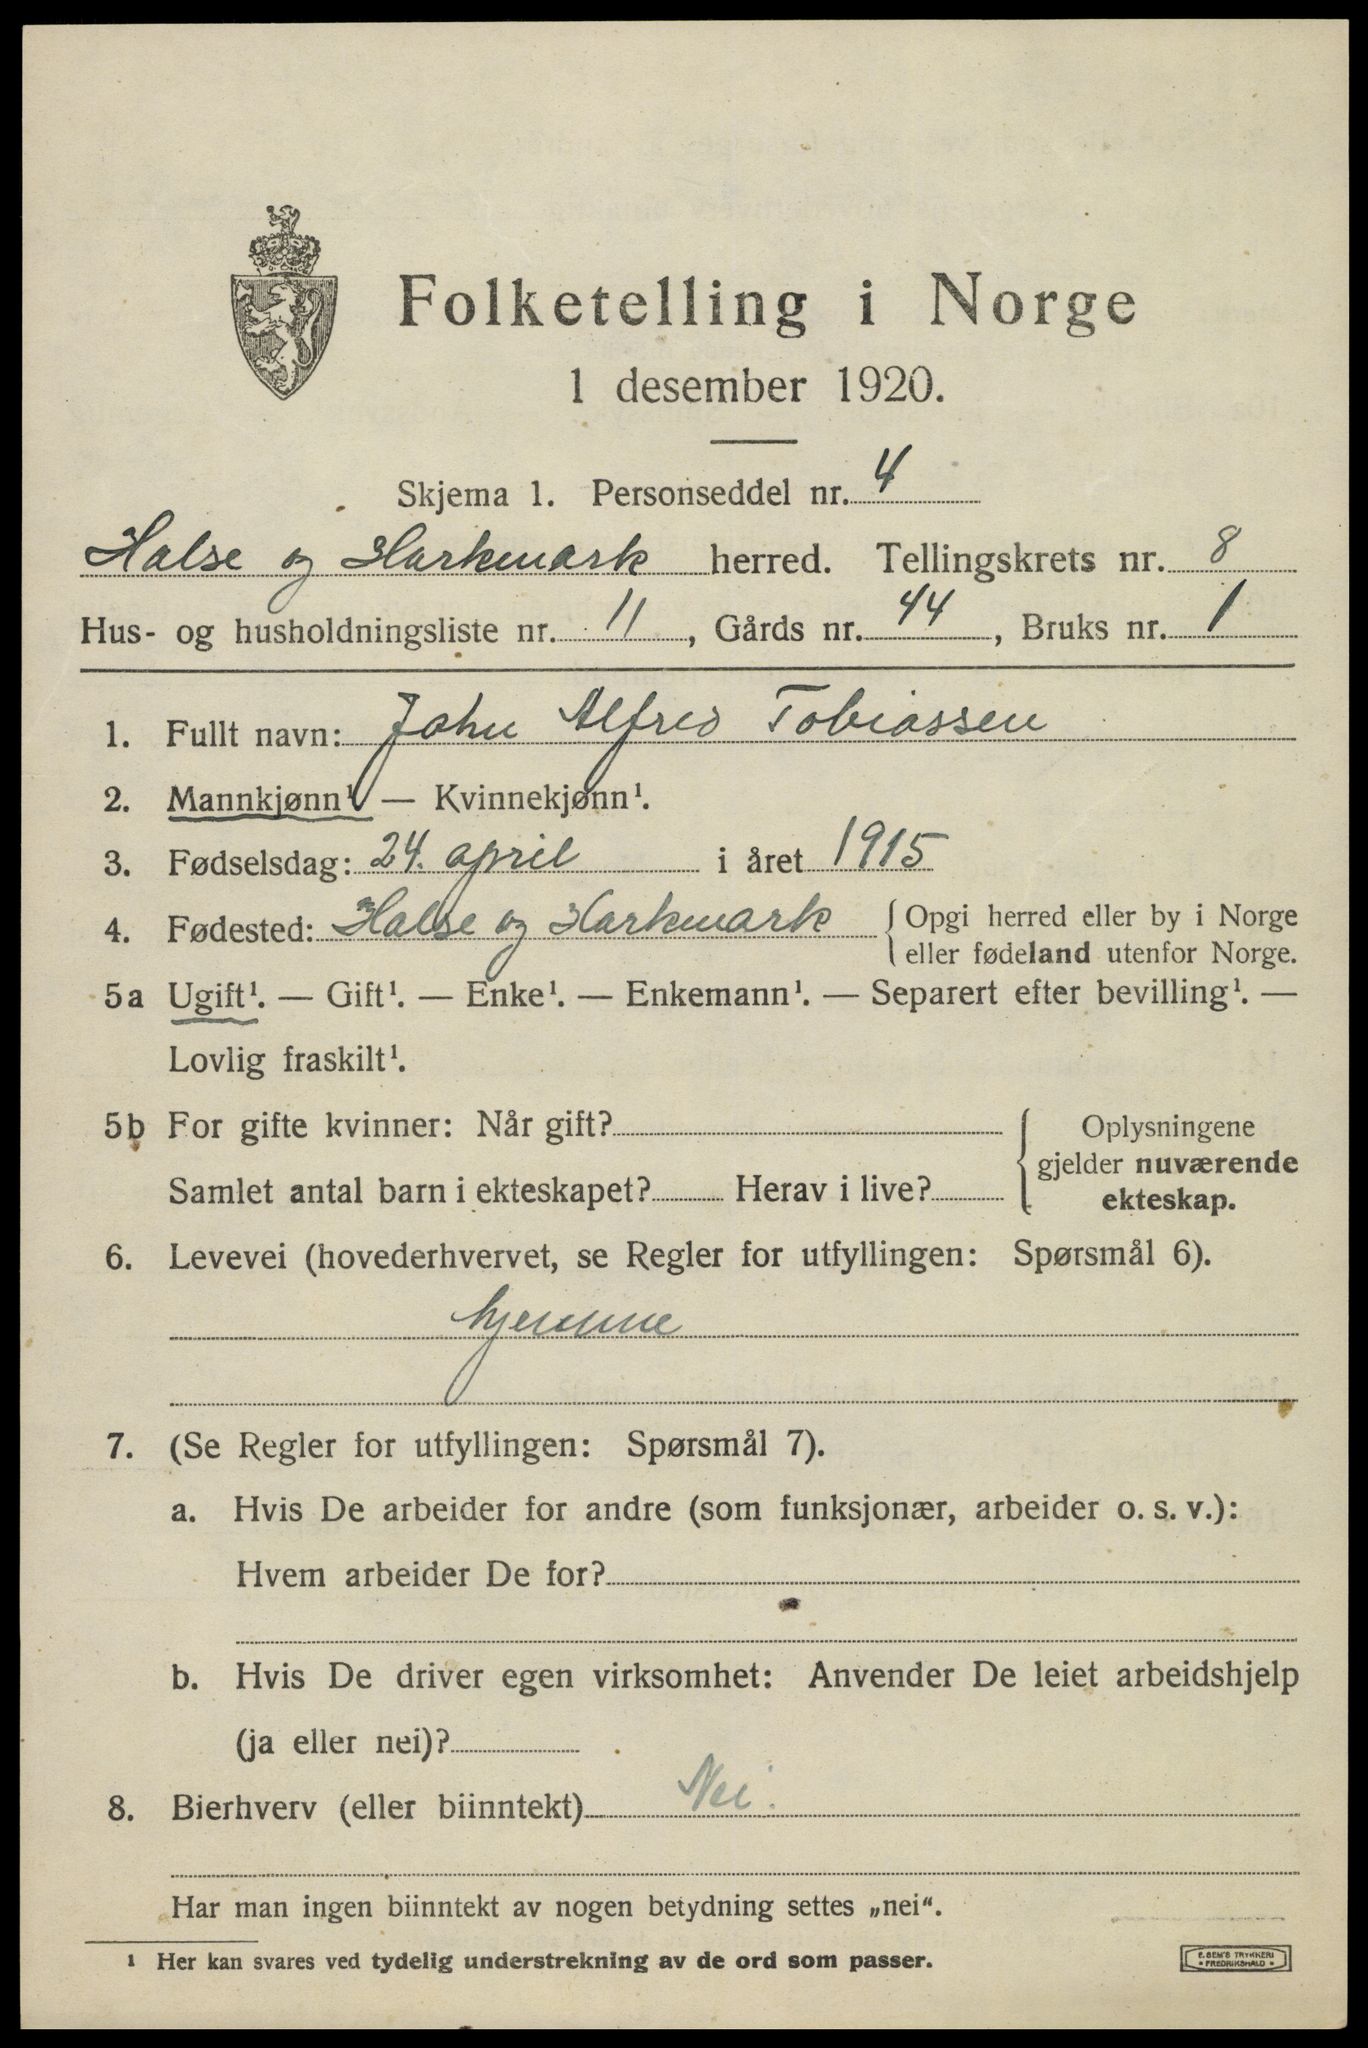 Folketelling i Norge
1 desember 1920.
Skjema 1. Personseddel nr. 4
Halse og Harkmark herred. Tellingskrets nr. 8
Hus- og husholdningsliste nr. 11, Gårds nr. 44, Bruks nr. 1
1. Fullt navn: John Alfred Tobiassen
2. Mannkjønn¹. — Kvinnekjønn¹.
3. Fødselsdag: 24. april i året 1915
4. Fødested: Halse og Harkmark { Opgi herred eller by i Norge
eller fødeland utenfor Norge.
5a Ugift¹. — Gift¹. — Enke¹. — Enkemann¹. — Separert efter bevilling¹. —
Lovlig fraskilt¹.
5b For gifte kvinner: Når gift?
Samlet antal barn i ekteskapet? Herav i live?
Oplysningene
gjelder nuværende
ekteskap.
6. Levevei (hovederhvervet, se Regler for utfyllingen: Spørsmål 6).
hjemme
7. (Se Regler for utfyllingen: Spørsmål 7).
a. Hvis De arbeider for andre (som funksjonær, arbeider o. s. v.):
Hvem arbeider De for?
b. Hvis De driver egen virksomhet: Anvender De leiet arbeidshjelp
(ja eller nei)?
8. Bierhverv (eller biinntekt) Nei.
Har man ingen biinntekt av nogen betydning settes „nei“.
¹ Her kan svares ved tydelig understrekning av de ord som passer.
E. SEM'S TRYKKERI
• FREDRIKSHALD •